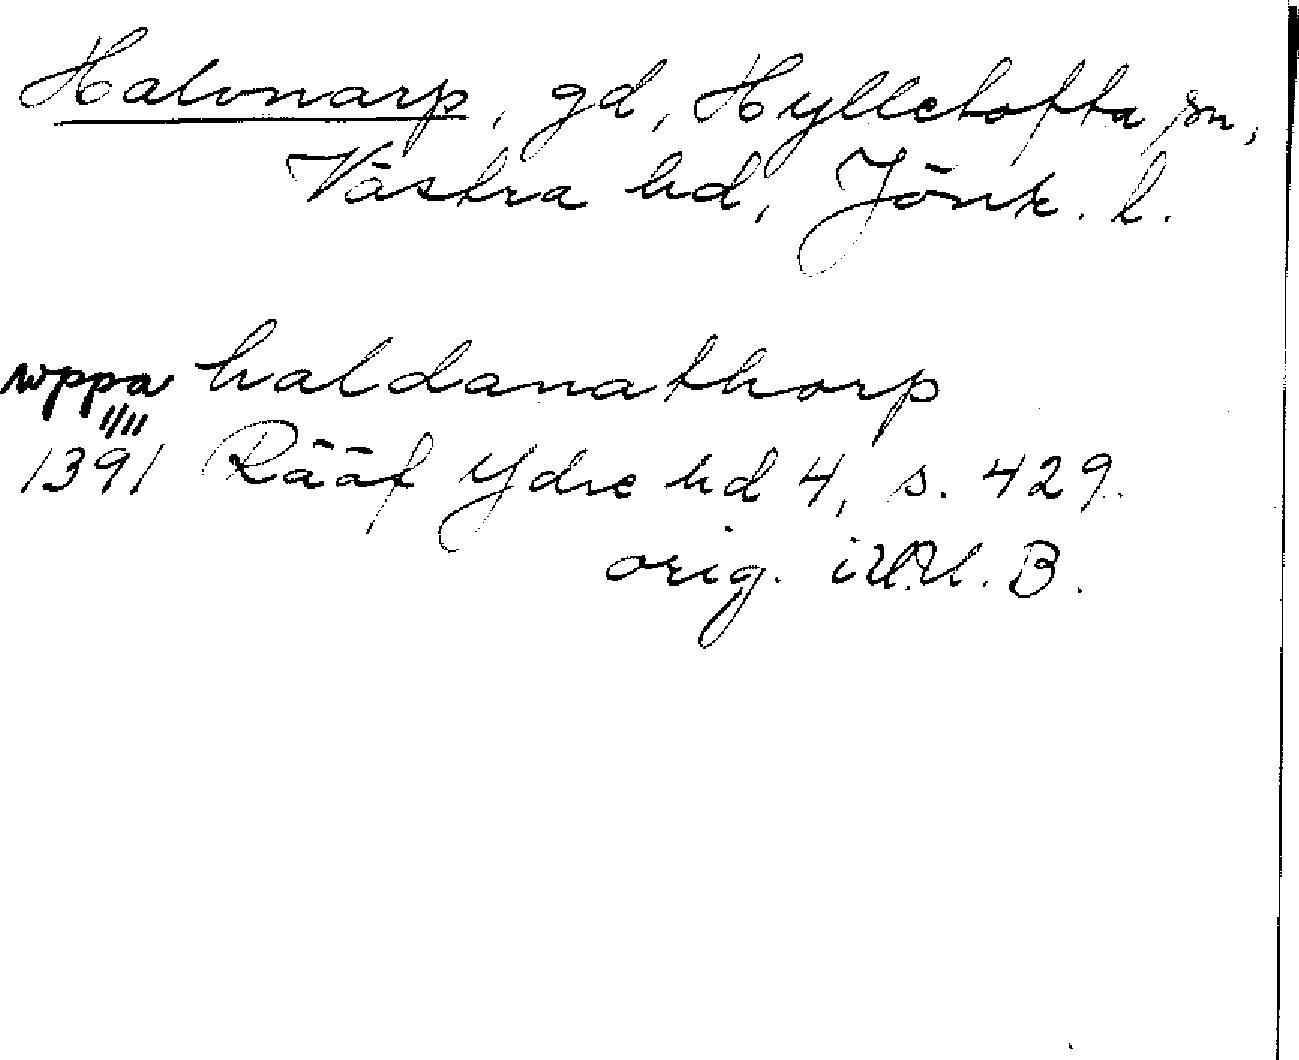 Halvnarp, gd, Hylletofta sn,
Västra hd, Jönk. l.
wppa haldanathorp
1/11
1391 Rääf Ydre hd 4, s. 429.
orig. i U.U.B.